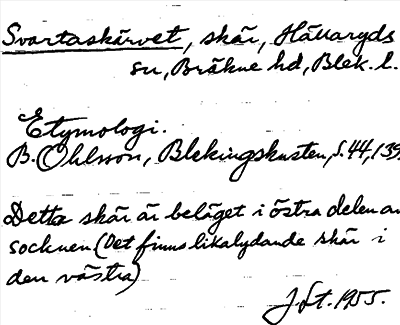 Svartaskärvet, skär, Hällaryds
sn, Bräkne hd, Blek. l.
Etymologi.
B. Ohlsson, Blekingskusten, s. 44, 139
Detta skär är beläget i östra delen av
socknen (Det finns likalydande skär i
den västra)
J. Lt. 1955.